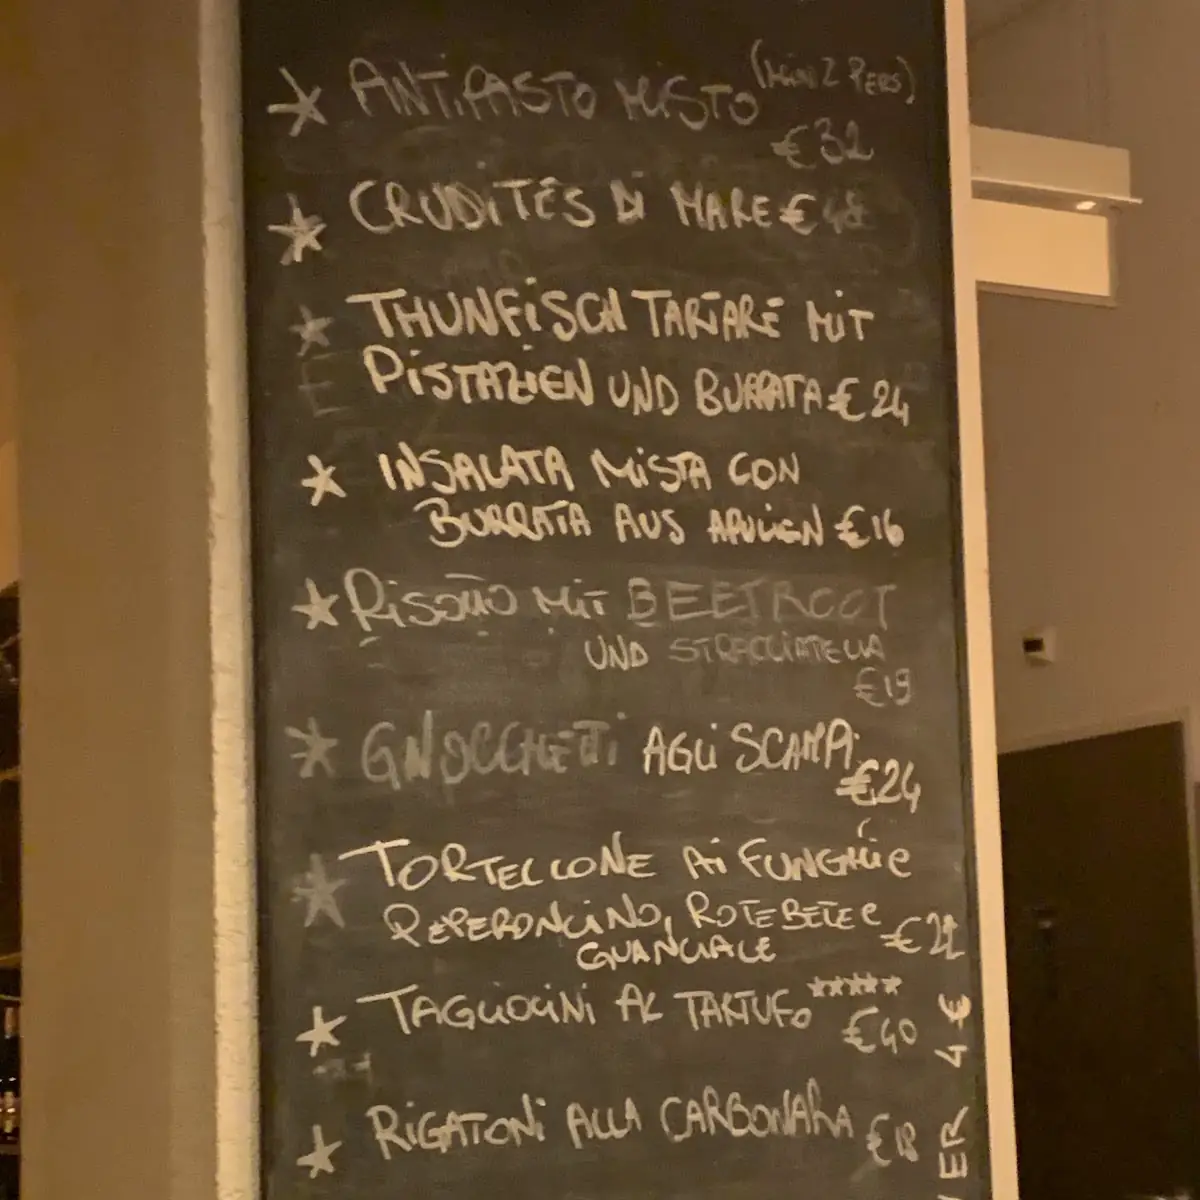 ANTIPASTO MISTO (MIN 2 PERS)
€32
CRUDITÉS DI MARE €48
THUNFISCH TARTARE MIT
PISTAZIEN UND BURRATA €24
INSALATA MISTA CON
BURRATA AUS APULIEN €16
RISOTTO MIT BEETROOT
UND STRACCIATELLA
€19
GNOCCHETTI AGLI SCAMPI
€24
TORTELLONE AI FUNGHI e
PEPERONCINO, ROTE BETE e €22
GUANCIALE
TAGLIOLINI AL TARTUFO *****
€40
RIGATONI ALLA CARBONARA €18
VER 4€